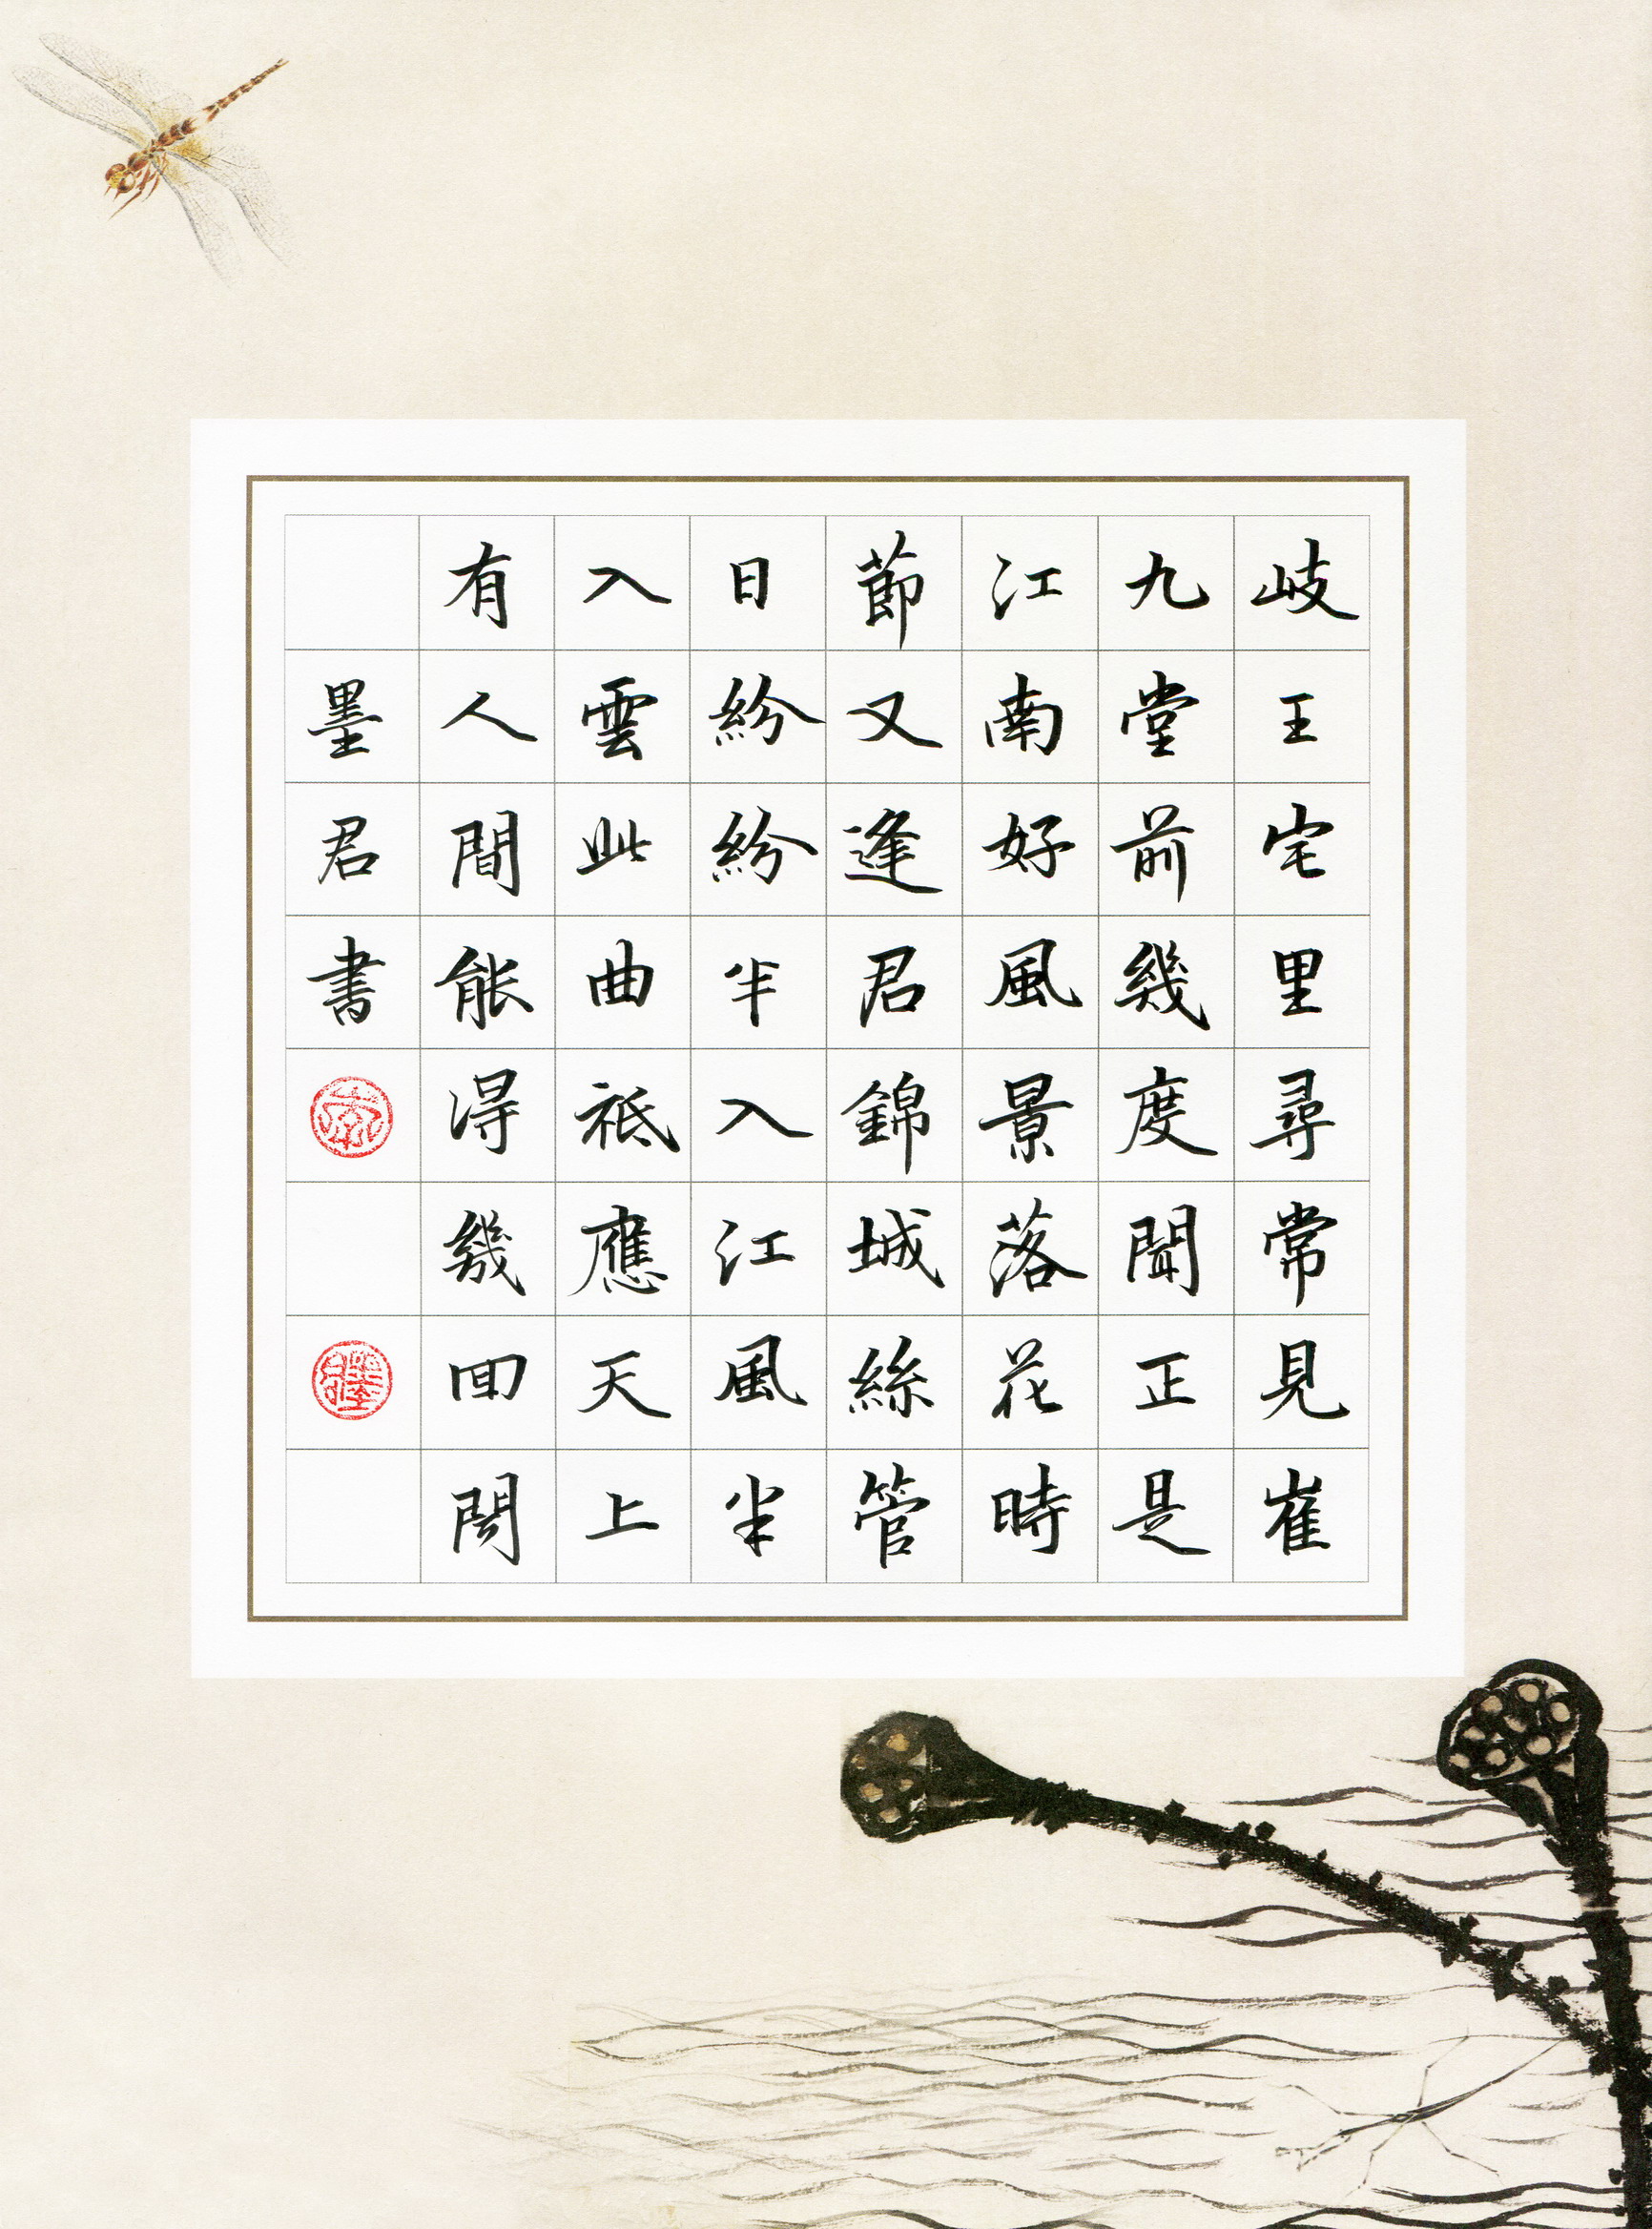 岐王宅里尋常見崔
九堂前幾度聞正是
江南好風景落花時
節又逢君錦城絲管
日紛紛半入江風半
入雲此曲祇應天上
有人間能得幾回聞
墨君書